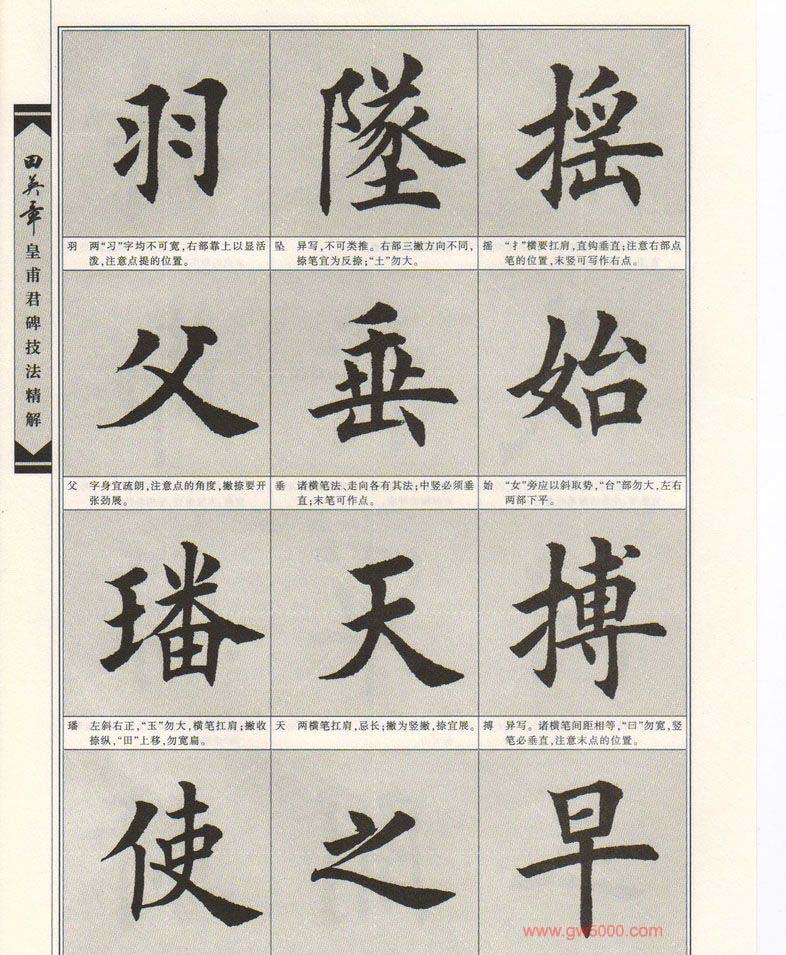 田英章
皇甫君碑技法精解
羽 墜 摇
羽 两“习”字均不可宽,右部靠上以显活
泼,注意点提的位置。
坠 异写,不可类推。右部三撇方向不同,
捺笔宜为反捺;“土”勿大。
摇 “扌”横要扛肩,直钩垂直;注意右部点
笔的位置,末竖可写作右点。
父 垂 始
父 字身宜疏朗,注意点的角度,撇捺要开
张劲展。
垂 诸横笔法、走向各有其法;中竖必须垂
直;末笔可作点。
始 “女”旁应以斜取势,“台”部勿大,左右
两部下平。
璠 天 搏
璠 左斜右正,“玉”勿大,横笔扛肩;撇收
捺纵,“田”上移,勿宽扁。
天 两横笔扛肩,忌长;撇为竖撇,捺宜展。
搏 异写。诸横笔间距相等,“曰”勿宽,竖
笔必垂直,注意末点的位置。
使 之 早
www.gw5000.com